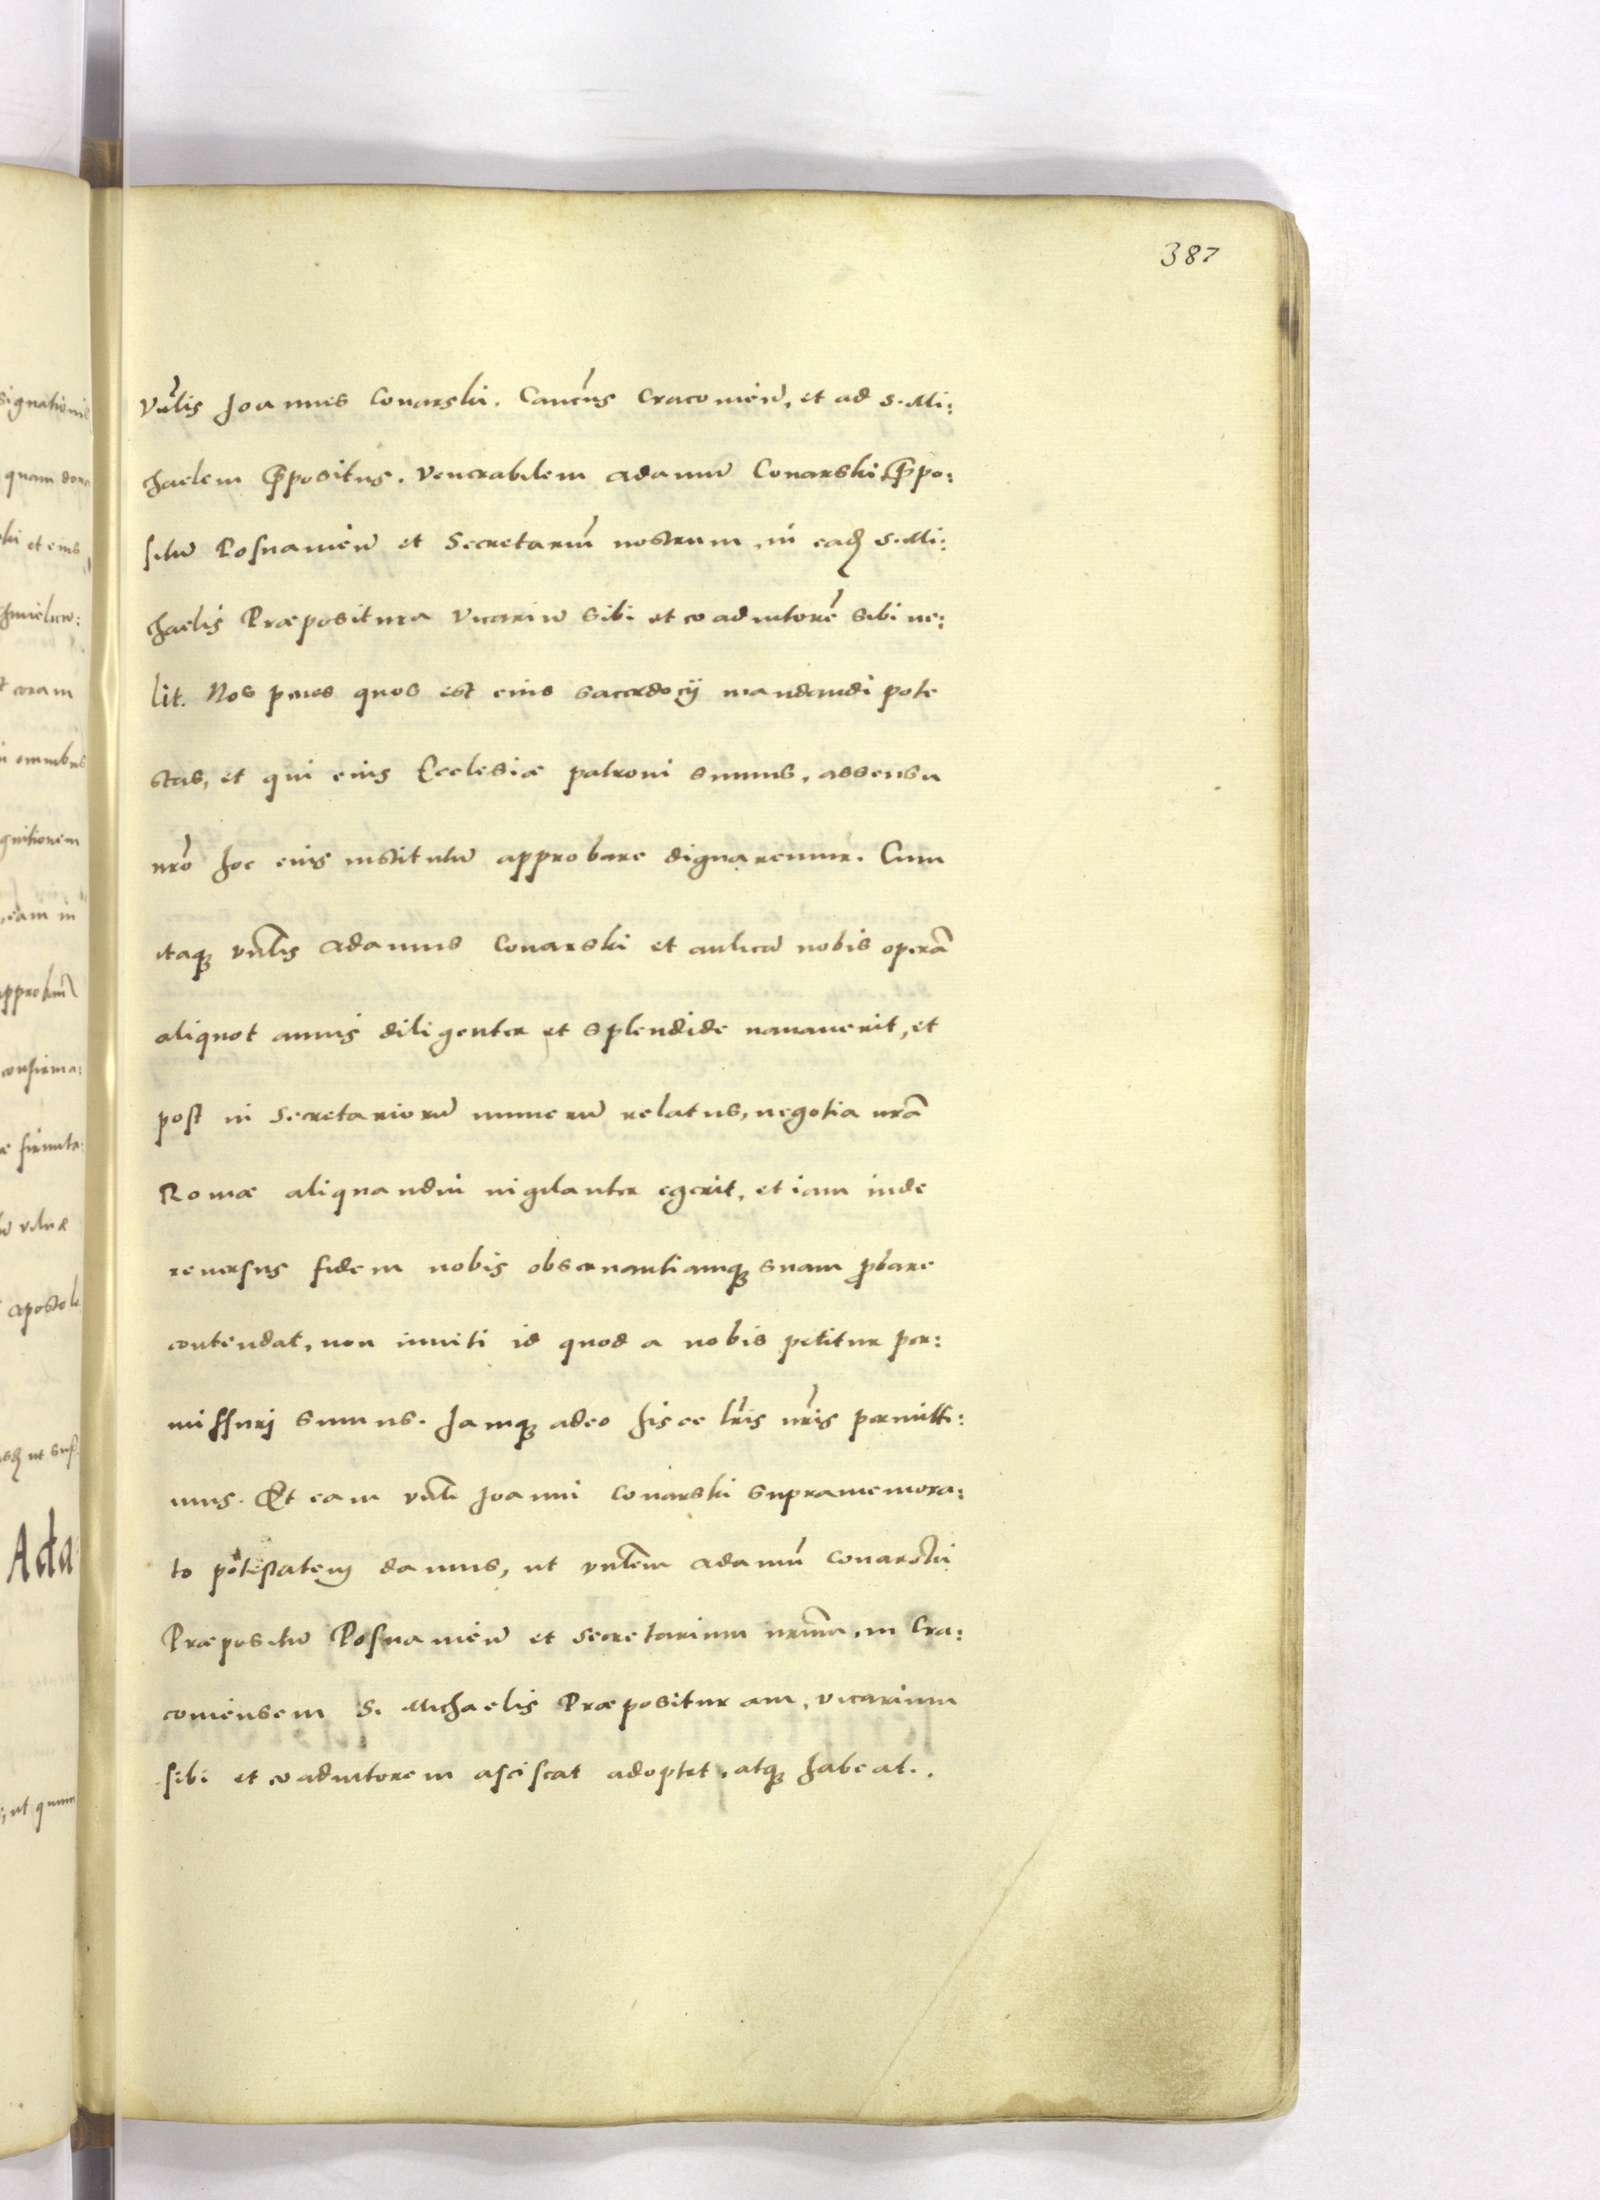 387
Vn̄lis Joannes Conarski. Canc̄us Cracovien̄, et ad S. Mi:
chaelem p̄positus. Venerabilem Adamū Conarski p̄po:
sitū Posnanien̄ et Secretariū nostrum, in eadē S. Mi:
chaelis Præpositura vicariū sibi et coadiutorē sibi ve:
lit. Nos penes quos est eius sacerdocij mandandi pote
stas, et qui eius Ecclesiæ patroni sumus, assensu
nr̄o hoc eius institutū approbare dignaremur. Cum
itaq; vn̄lis Adamus Conarski et aulicā nobis operā
aliquot annis diligenter et splendide navaverit, et
post in Secretariorū numerū relatus, negotia nr̄a
Romæ aliquandiu vigilanter egerit, et iam inde
reversus fidem nobis observantiamq; suam p̄bare
contendat, non inviti id quod a nobis petitur per:
missuri sumus. Jamq; adeo hisce lr̄is nr̄is permitti:
mus. Et eam vn̄li Joanni Conarski supramemora:
to potestatem damus, ut vn̄lem Adamū Conarski
Præpositū Posnanien̄ et secretarium nr̄um, in Cra:
coviensem S. Michaelis Præposituram, vicarium
sibi et coadiutorem asciscat adoptet, atq; habeat.
signationis
quam
et eius
coram
omnibus
gnitionem
eam in
confirma:
firmita:
apostoli
Ada
ut quum